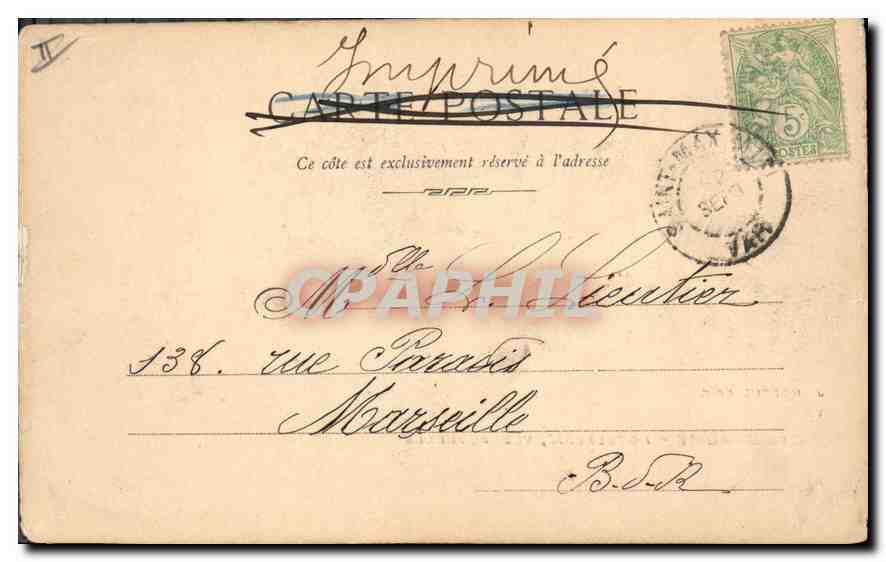 II
Imprimé
CARTE POSTALE
5c
POSTES
Ce côte est exclusivement réservé à l'adresse
SAINTE-MAXIME
SEPT
VAR
Mdlle L. Lieutier
CPAPHIL
138. rue Paradis
Marseille
B-d-R